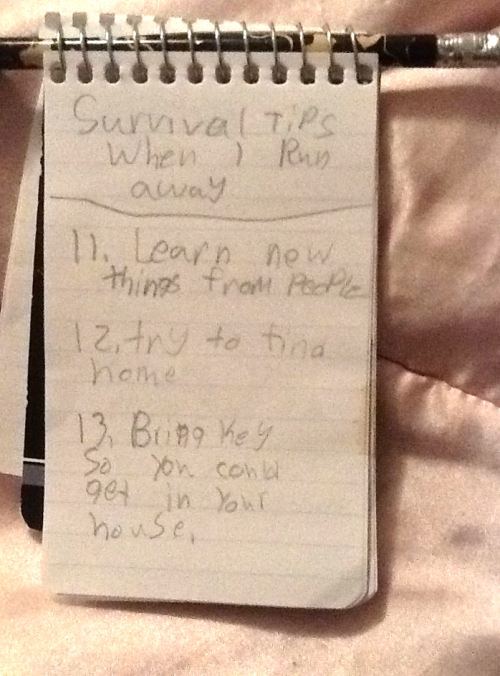 Survival Tips
When I Run
away
11. Learn new
things from People
12. try to find
home
13. Bring key
So you could
get in Your
house.